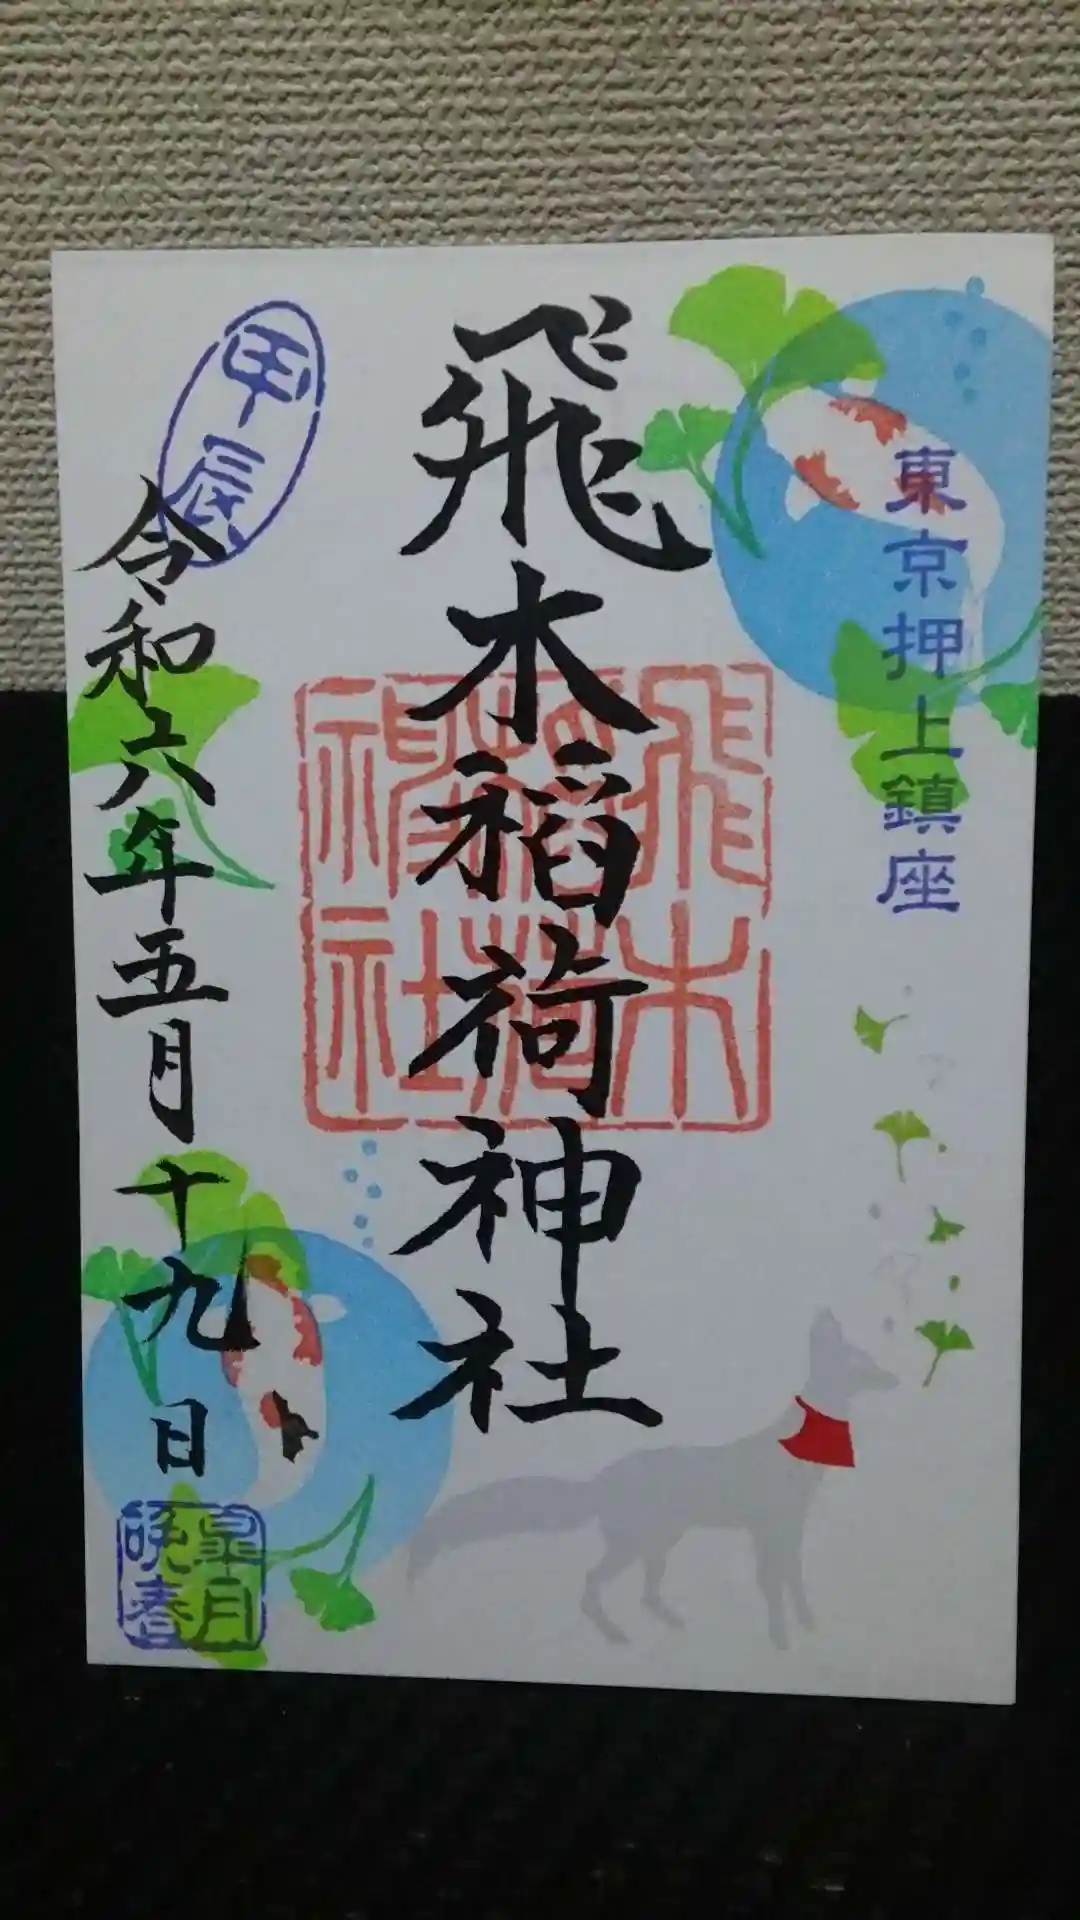 東京押上鎮座
飛木稲荷神社
飛木
稲荷
神社
甲辰
令和六年五月十九日
皐月
晩春